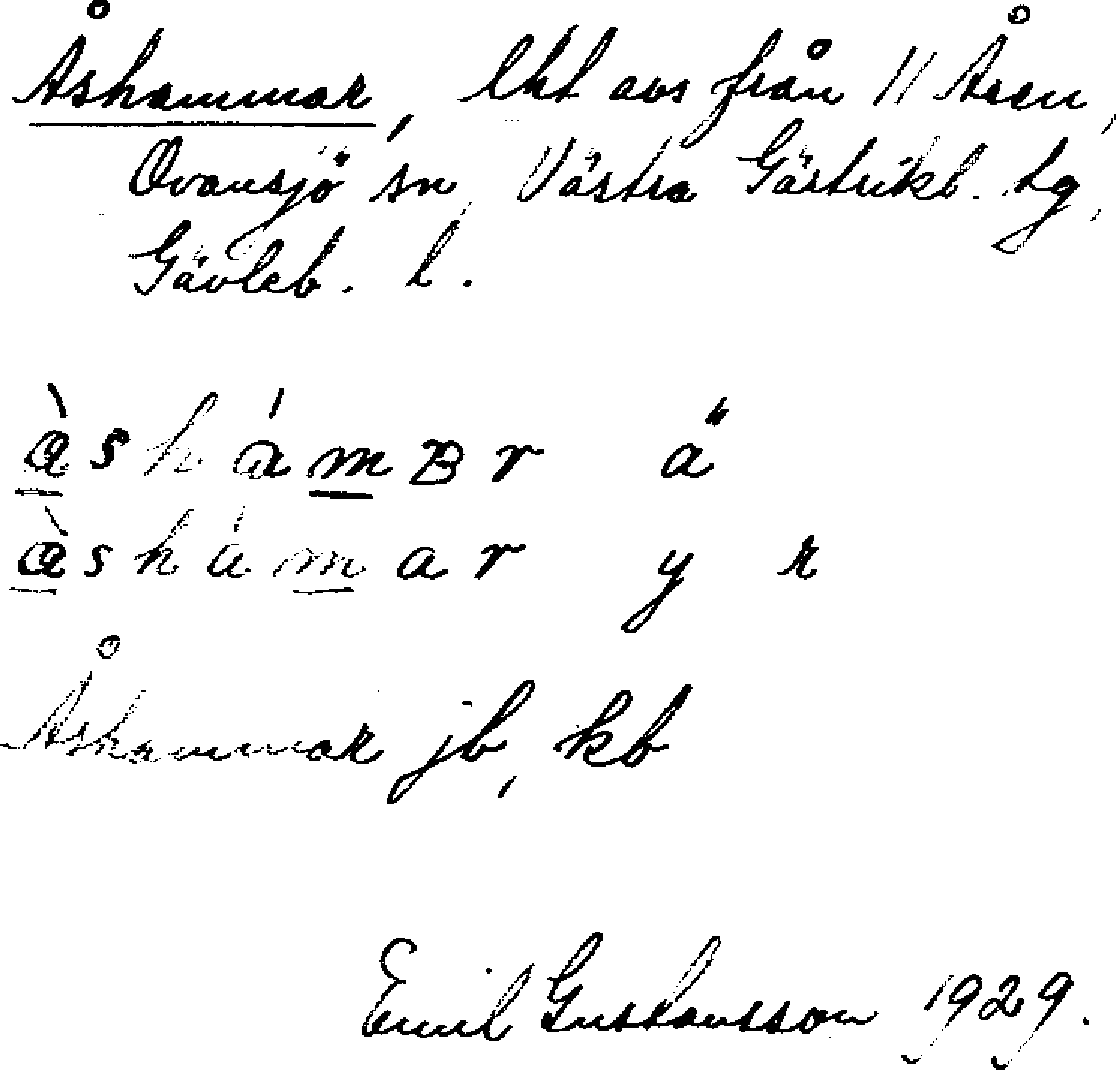 Åshammar, lht avs från 11 Åsen,
Ovansjö sn, Västra Gästrikl. tg,
Gävleb. l.
å̱̀shám̱ʙr ä
å̱̀shám̱ar y r
Åshammar jb, kb
Emil Gustavsson 1929.